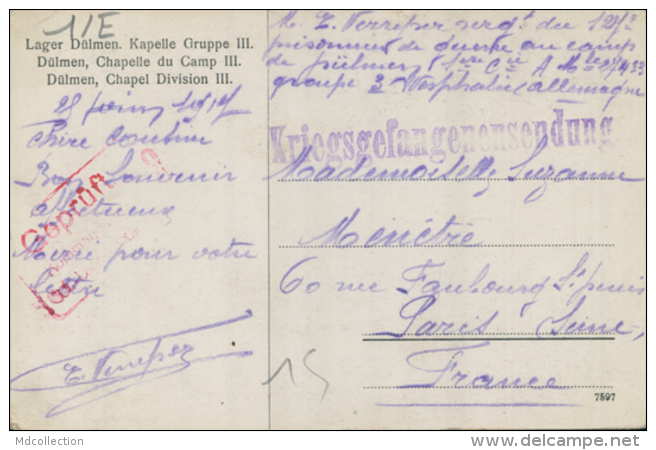 11E
Lager Dülmen. Kapelle Gruppe III.
Dülmen, Chapelle du Camp III.
Dülmen, Chapel Division III.
chère cousine
Bon souvenir
affectueux
Merci pour votre
lettre
sergt du
prisonnier de guerre au camp
de Dülmen 1ère Cie A Mle
groupe 3 Westphalie Allemagne
Kriegsgefangenensendung.
Mademoiselle Suzanne
Menétré
60 rue Faubourg St Denis
Paris Seine
France
Geprüft
15
7597
Mdcollection
www.delcampe.net